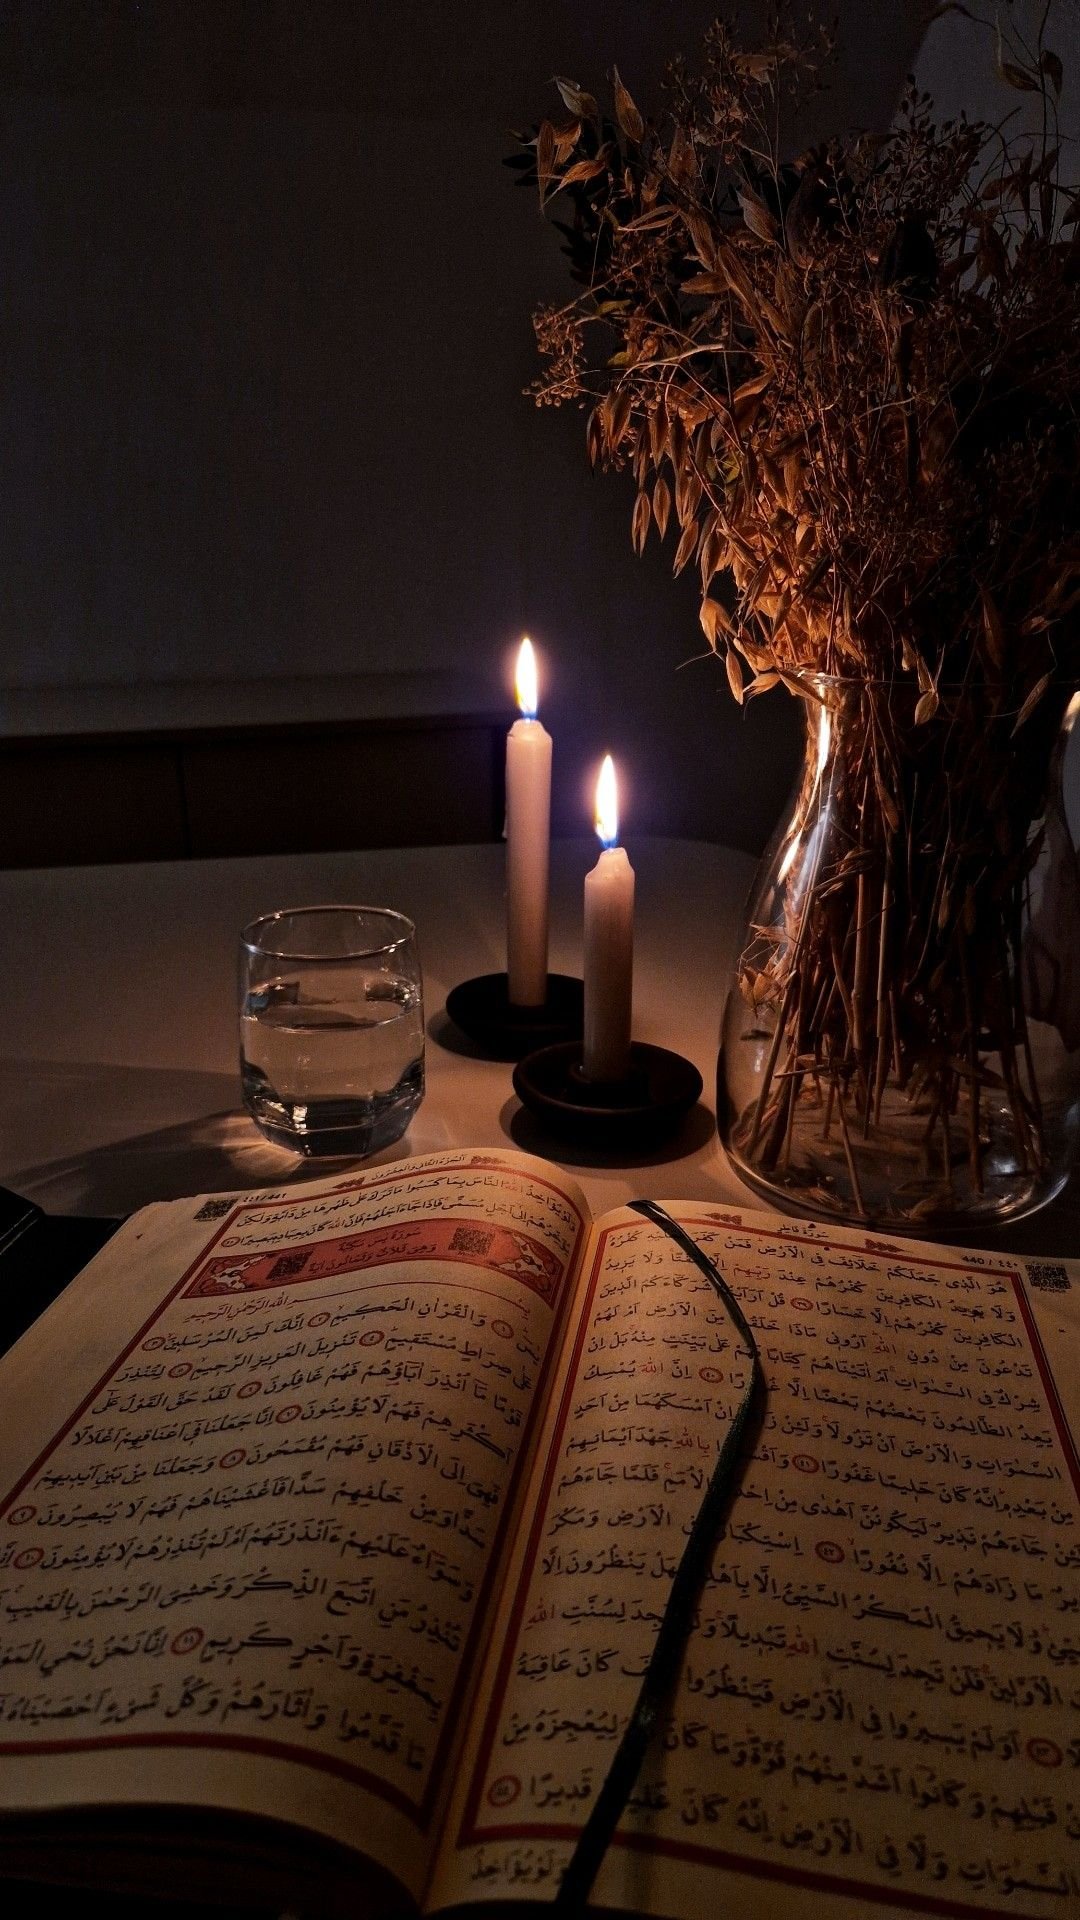 سُورَةُ فَاطِرٍ
440 / ٤٤٠
هُوَ الَّذِي جَعَلَكُمْ خَلَائِفَ فِي الْاَرْضِ فَمَنْ كَفَرَ فَعَلَيْهِ كُفْرُهُ
وَلَا يَزِيدُ الْكَافِرِينَ كُفْرُهُمْ عِنْدَ رَبِّهِمْ اِلَّا مَقْتًا وَلَا يَزِيدُ
الْكَافِرِينَ كُفْرُهُمْ اِلَّا خَسَارًا ٣٩ قُلْ اَرَاَيْتُمْ شُرَكَاءَكُمُ الَّذِينَ
تَدْعُونَ مِنْ دُونِ اللهِ اَرُونِي مَاذَا خَلَقُوا مِنَ الْاَرْضِ اَمْ لَهُمْ
شِرْكٌ فِي السَّمٰوَاتِ اَمْ اٰتَيْنَاهُمْ كِتَابًا فَهُمْ عَلٰى بَيِّنَتٍ مِنْهُ بَلْ اِنْ
يَعِدُ الظَّالِمُونَ بَعْضُهُمْ بَعْضًا اِلَّا غُرُورًا ٤٠ اِنَّ اللهَ يُمْسِكُ
السَّمٰوَاتِ وَالْاَرْضَ اَنْ تَزُولَا وَلَئِنْ اِنْ اَمْسَكَهُمَا مِنْ اَحَدٍ
مِنْ بَعْدِهِ اِنَّهُ كَانَ حَلِيمًا غَفُورًا ٤١ وَاَقْسَمُوا بِاللهِ جَهْدَ اَيْمَانِهِمْ
لَئِنْ جَاءَهُمْ نَذِيرٌ لَيَكُونُنَّ اَهْدٰى مِنْ اِحْدَى الْاُمَمِ فَلَمَّا جَاءَهُمْ
نَذِيرٌ مَا زَادَهُمْ اِلَّا نُفُورًا ٤٢ اِسْتِكْبَارًا فِي الْاَرْضِ وَمَكْرَ
السَّيِّئِ وَلَا يَحِيقُ الْمَكْرُ السَّيِّئُ اِلَّا بِاَهْلِهِ فَهَلْ يَنْظُرُونَ اِلَّا
الْاَوَّلِينَ فَلَنْ تَجِدَ لِسُنَّتِ اللهِ تَبْدِيلًا وَلَنْ تَجِدَ لِسُنَّتِ اللهِ
٤٣ اَوَلَمْ يَسِيرُوا فِي الْاَرْضِ فَيَنْظُرُوا كَيْفَ كَانَ عَاقِبَةُ
مِنْ قَبْلِهِمْ وَكَانُوا اَشَدَّ مِنْهُمْ قُوَّةً وَمَا كَانَ لِيُعْجِزَهُ مِنْ
السَّمٰوَاتِ وَلَا فِي الْاَرْضِ اِنَّهُ كَانَ عَلِيمًا قَدِيرًا ٤٤
وَلَوْ يُؤَاخِذُ
اَلْجُزْءُ الثَّانِي وَالْعِشْرُونَ
٤٤١ / 441
وَلَوْ يُؤَاخِذُ اللهُ النَّاسَ بِمَا كَسَبُوا مَا تَرَكَ عَلٰى ظَهْرِهَا مِنْ دَابَّةٍ وَلٰكِنْ
يُؤَخِّرُهُمْ اِلٰى اَجَلٍ مُسَمًّى فَاِذَا جَاءَ اَجَلُهُمْ فَاِنَّ اللهَ كَانَ بِعِبَادِهِ بَصِيرًا ٤٥
سُورَةُ يٰسٓ مَكِّيَّةٌ
وَهِيَ ثَلَاثٌ وَثَمَانُونَ اٰيَةً
بِسْمِ اللهِ الرَّحْمٰنِ الرَّحِيمِ
يٰسٓ ١ وَالْقُرْاٰنِ الْحَكِيمِ ٢ اِنَّكَ لَمِنَ الْمُرْسَلِينَ ٣
عَلٰى صِرَاطٍ مُسْتَقِيمٍ ٤ تَنْزِيلَ الْعَزِيزِ الرَّحِيمِ ٥ لِتُنْذِرَ
قَوْمًا مَا اُنْذِرَ اٰبَاؤُهُمْ فَهُمْ غَافِلُونَ ٦ لَقَدْ حَقَّ الْقَوْلُ عَلٰى
اَكْثَرِهِمْ فَهُمْ لَا يُؤْمِنُونَ ٧ اِنَّا جَعَلْنَا فِي اَعْنَاقِهِمْ اَغْلَالًا
فَهِيَ اِلَى الْاَذْقَانِ فَهُمْ مُقْمَحُونَ ٨ وَجَعَلْنَا مِنْ بَيْنِ اَيْدِيهِمْ
سَدًّا وَمِنْ خَلْفِهِمْ سَدًّا فَاَغْشَيْنَاهُمْ فَهُمْ لَا يُبْصِرُونَ ٩
وَسَوَاءٌ عَلَيْهِمْ ءَاَنْذَرْتَهُمْ اَمْ لَمْ تُنْذِرْهُمْ لَا يُؤْمِنُونَ ١٠
تُنْذِرُ مَنِ اتَّبَعَ الذِّكْرَ وَخَشِيَ الرَّحْمٰنَ بِالْغَيْبِ
بِمَغْفِرَةٍ وَاَجْرٍ كَرِيمٍ ١١ اِنَّا نَحْنُ نُحْيِ
مَا قَدَّمُوا وَاٰثَارَهُمْ وَكُلَّ شَيْءٍ اَحْصَيْنَاهُ